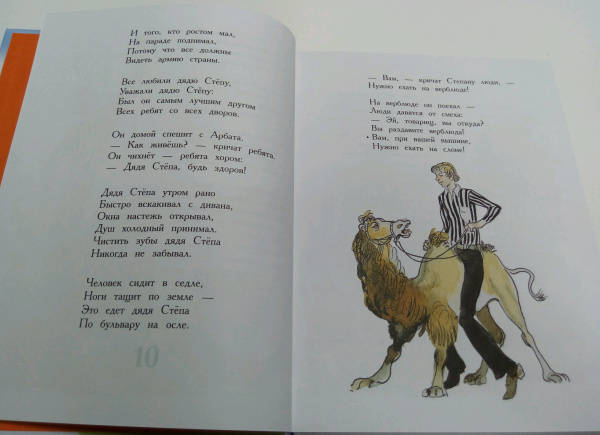 И того, кто ростом мал,
На параде поднимал,
Потому что все должны
Видеть армию страны.
Все любили дядю Стёпу,
Уважали дядю Стёпу:
Был он самым лучшим другом
Всех ребят со всех дворов.
Он домой спешит с Арбата.
— Как живёшь? — кричат ребята.
Он чихнёт — ребята хором:
— Дядя Стёпа, будь здоров!
Дядя Стёпа утром рано
Быстро вскакивал с дивана,
Окна настежь открывал,
Душ холодный принимал.
Чистить зубы дядя Стёпа
Никогда не забывал.
Человек сидит в седле,
Ноги тащит по земле —
Это едет дядя Стёпа
По бульвару на осле.
10
— Вам, — кричат Степану люди, —
Нужно ехать на верблюде!
На верблюде он поехал —
Люди давятся от смеха:
— Эй, товарищ, вы откуда?
Вы раздавите верблюда!
Вам, при вашей вышине,
Нужно ехать на слоне!